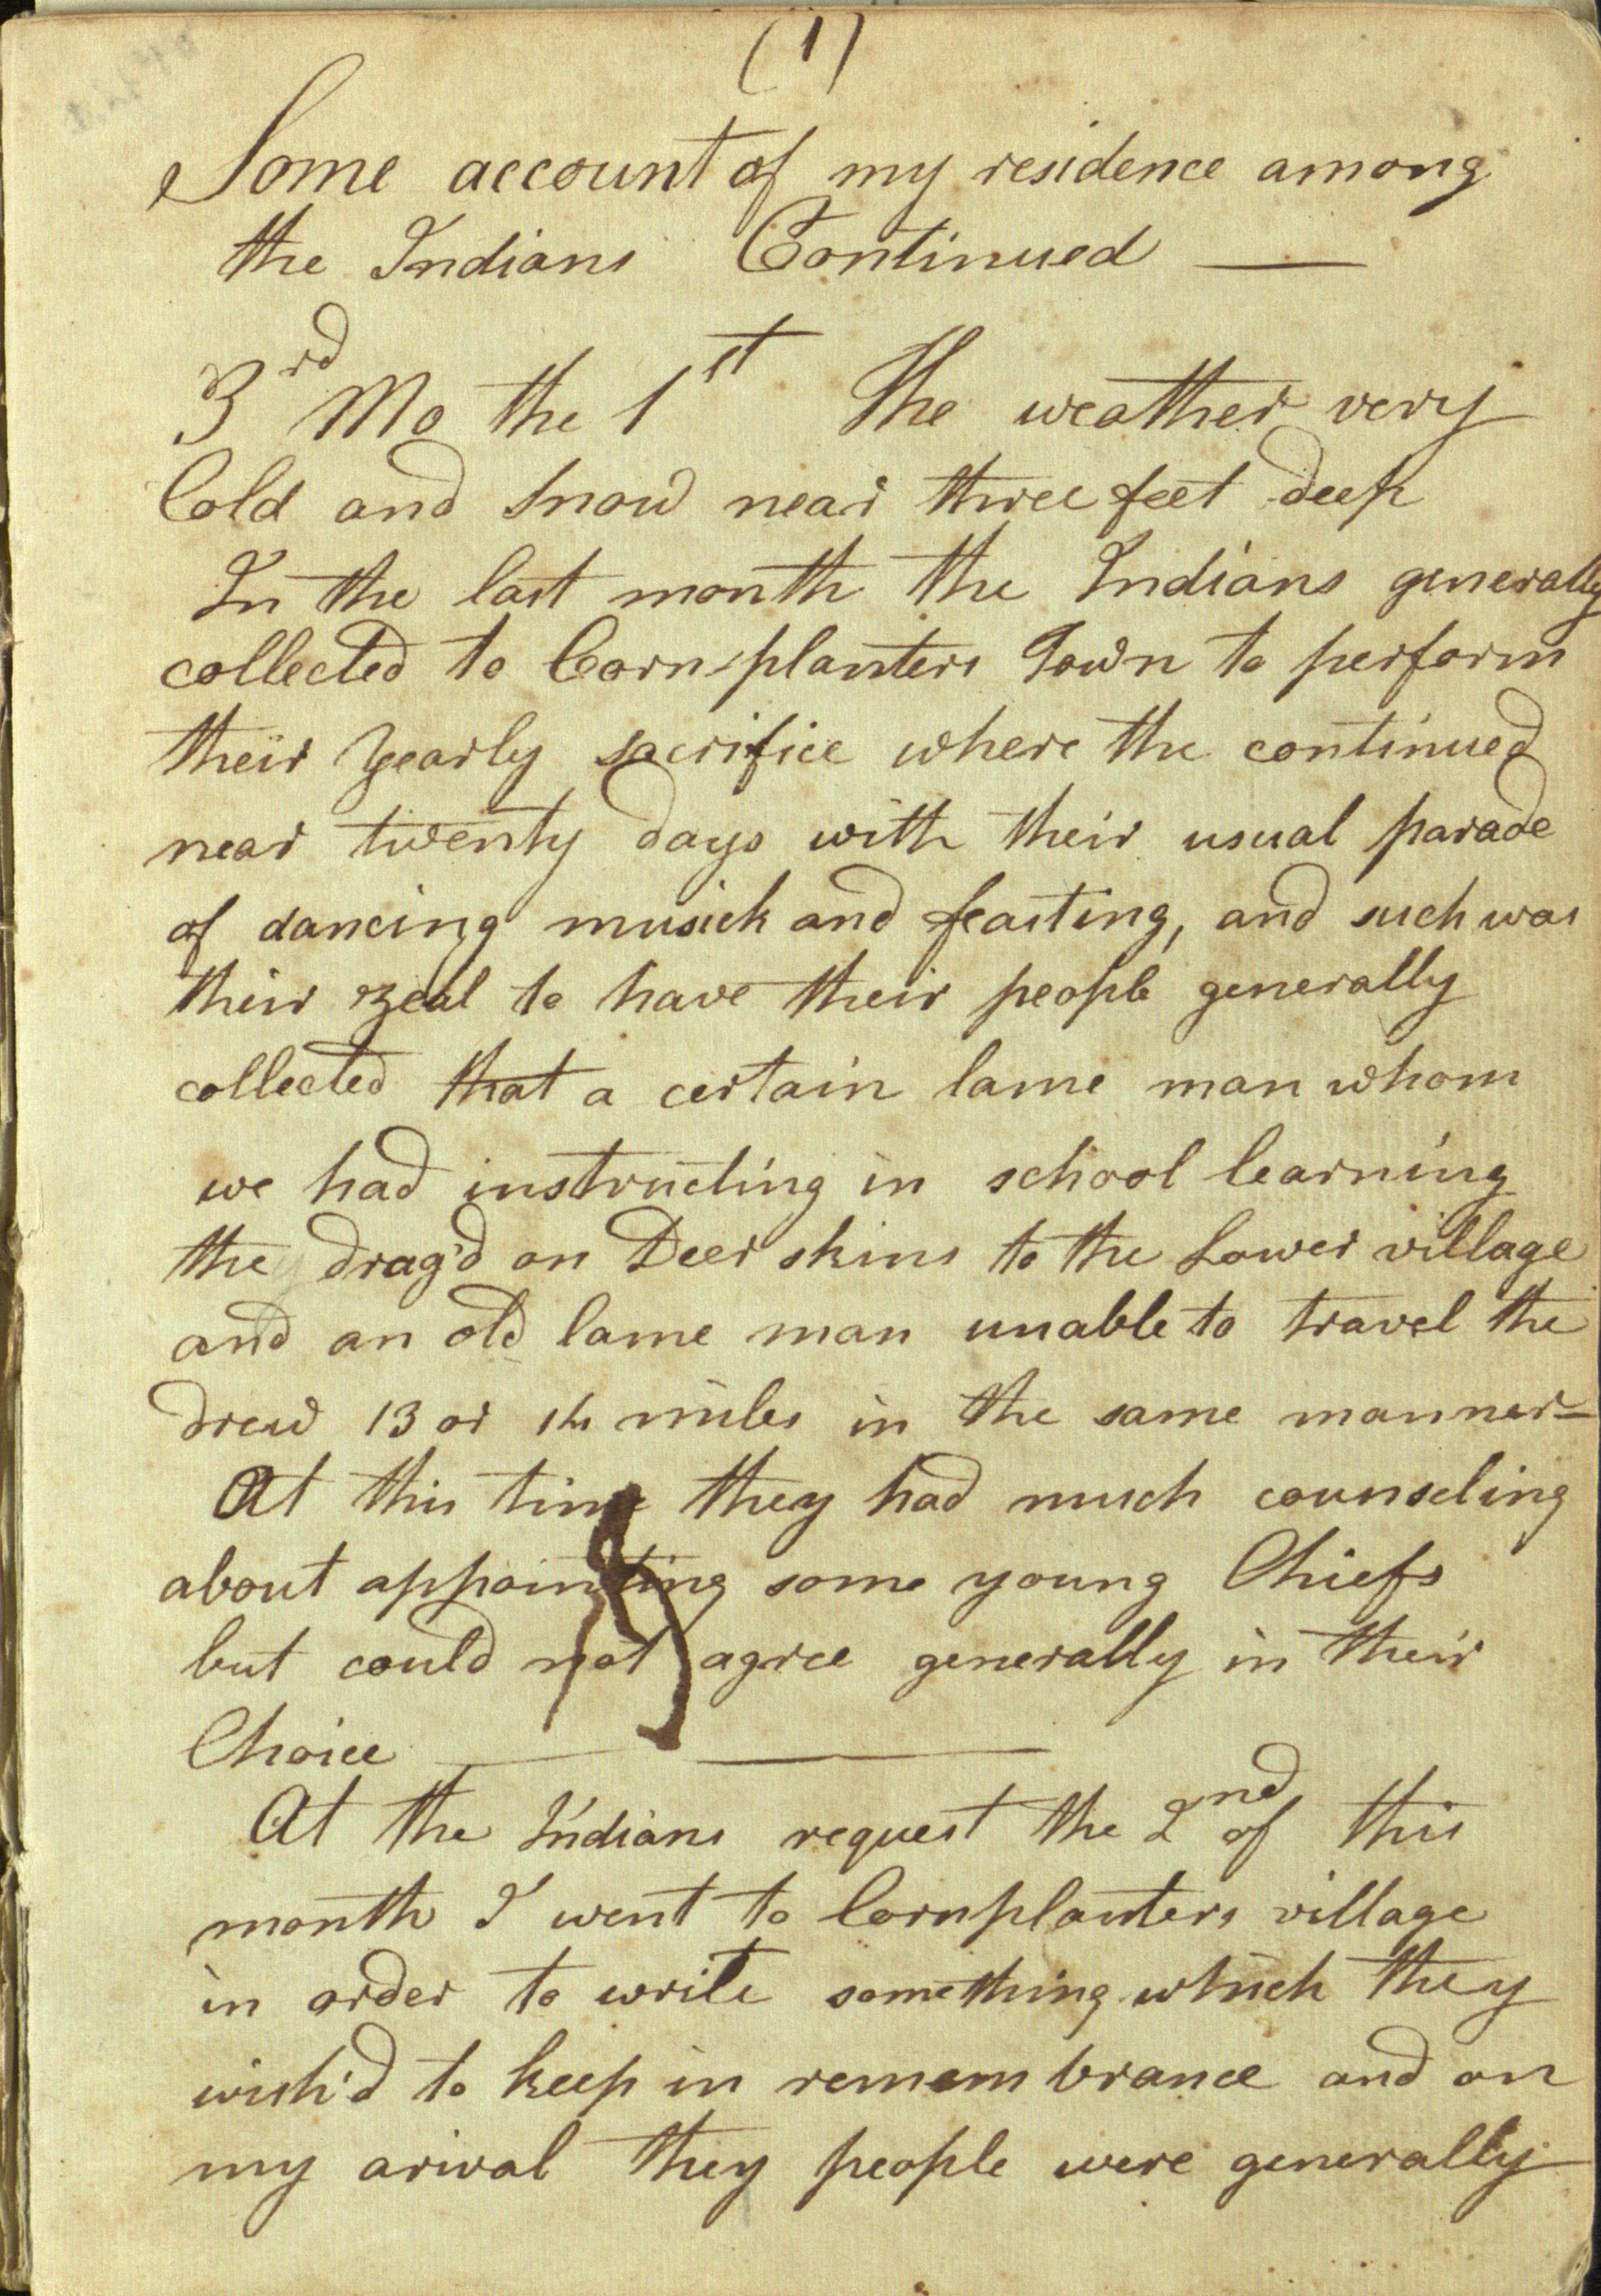 (1)
Some account of my residence among
the Indians Continued —
3rd Mo the 1st The weather very
Cold and Snow near three feet deep
In the last month the Indians generally
collected to Cornplanters Town to perform
their Yearly sacrifice where the continued
near twenty days with their usual parade
of dancing musick and feasting, and such was
their zeal to have their people generally
collected that a certain lame man whom
we had instructing in school learning
the drag'd on Deer skins to the Lower village
and an old lame man unable to travel the
drew 13 or 14 miles in the same manner –
At this time they had much counseling
about appointing some young Chiefs
but could not agree generally in their
Choice —
At the Indians request the 2nd of this
month I went to Cornplanters village
in order to write something which they
wish'd to keep in remembrance and on
my arival they people were generally